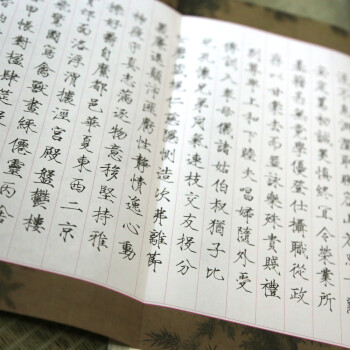 淵澄取映容止若
篤初誠美慎終宜令榮業所
基籍甚無竟學優登仕攝職從政
存以甘棠去而益詠樂殊貴賤禮
別尊卑上和下睦夫唱婦隨外受
傅訓入奉母儀諸姑伯叔猶子比
兒孔懷兄弟同氣連枝交友投分
仁慈隱惻造次弗離節
義廉退顛沛匪虧性靜情逸心動
神疲守真志滿逐物意移堅持雅
操好爵自縻都邑華夏東西二京
背邙面洛浮渭據涇宮殿盤鬱樓
飛驚圖寫禽獸畫綵僊靈丙舍
甲帳對楹肆筵設